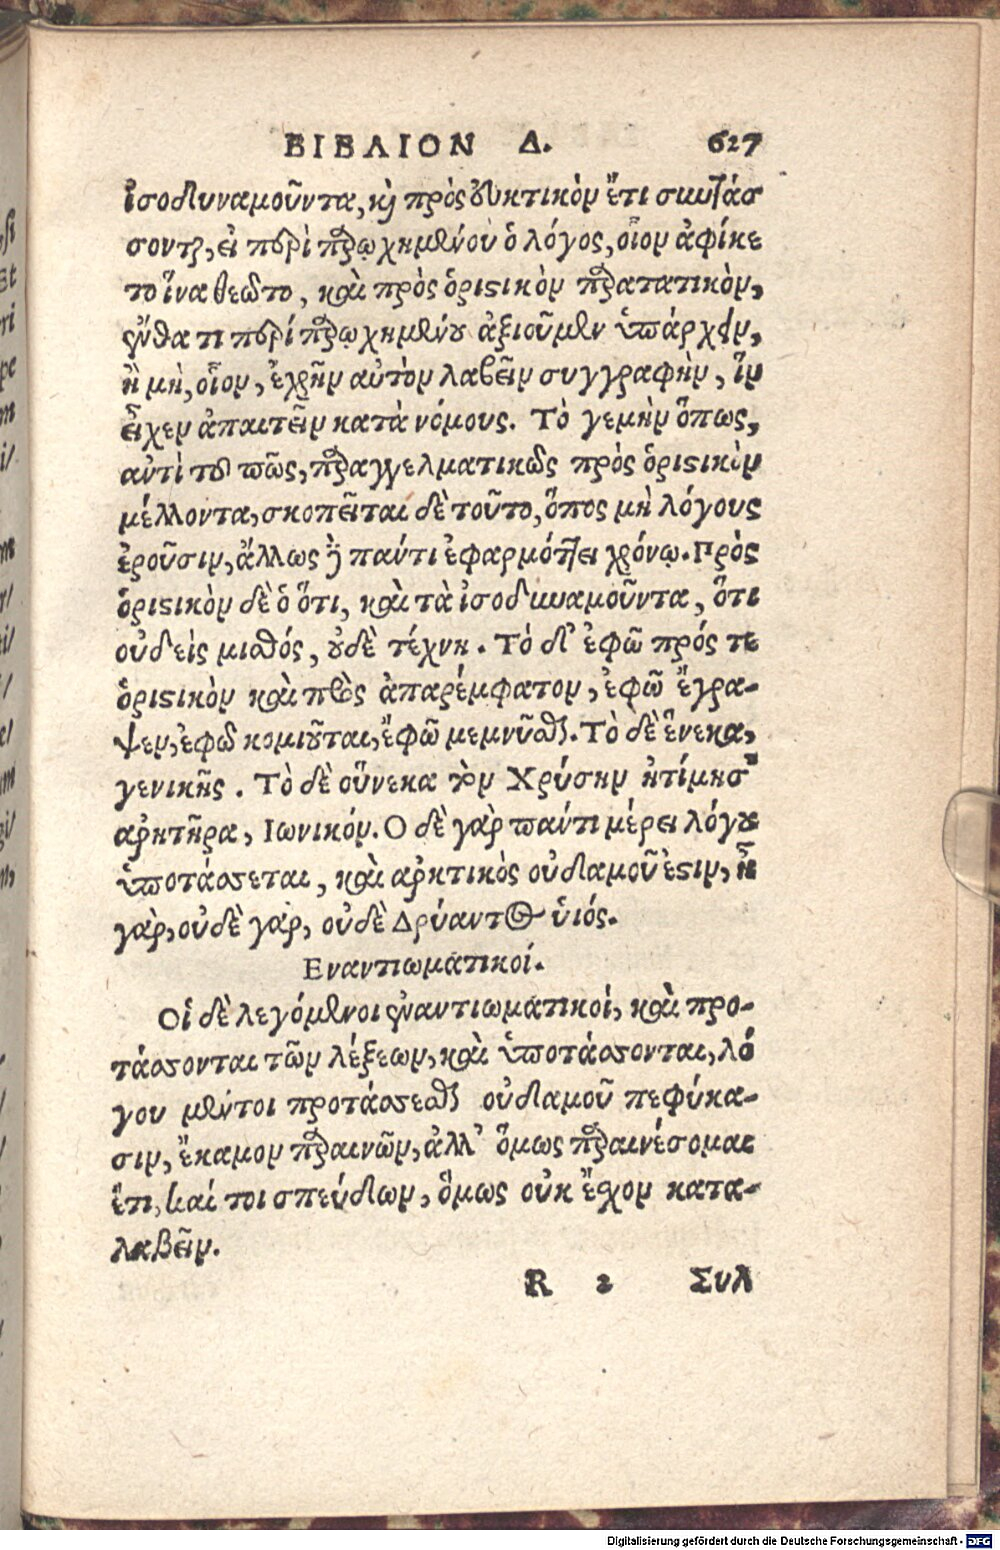 ΒΙΒΛΙΟΝ Δ. 627
ἰσοδυναμοῦντα, καὶ πρὸς εὐκτικὸν ἔτι συντάσ
σονται, εἰ περὶ παρῳχημένου ὁ λόγος, οἷον ἀφίκε
το ἵνα θεῷτο, καὶ πρὸς ὁριστικὸν παρατατικὸν,
ἔνθα τι περὶ παρῳχημένου ἀξιοῦμεν ὑπάρχειν,
ἢ μὴ, οἷον, ἐχρῆν αὐτὸν λαβεῖν συγγραφὴν, ἵν
εἶχεν ἀπαιτεῖν κατὰ νόμους. Τὸ γεμὴν ὅπως,
αὐτὶ τοῦ πῶς, παραγγελματικῶς πρὸς ὁριστικὸν
μέλλοντα, σκοπεῖται δὲ τοῦτο, ὅπος μὴ λόγους
ἐροῦσιν, ἄλλως ἢ παντὶ ἐφαρμόττει χρόνῳ. Πρὸς
ὁριστικὸν δὲ ὁ ὅτι, καὶ τὰ ἰσοδυναμοῦντα, ὅτι
οὐδεὶς μισθός, οὐδὲ τέχνη. Τὸ δ' ἐφῶ πρός τε
ὁριστικὸν καὶ πρὸς ἀπαρέμφατον, ἐφῶ ἔγρα-
ψεν, ἐφῶ κομιοῦται, ἔφῶ μεμνῆσθαι. Τὸ δὲ ἕνεκα,
γενικῆς. Τὸ δὲ οὕνεκα τὸν Χρύσην ἠτίμησ'
ἀρητῆρα, Ιωνικόν. Ο δὲ γὰρ παντὶ μέρει λόγου
ὑποτάσσεται, καὶ ἀρκτικὸς οὐδαμοῦ ἐστιν, ἦ
γὰρ, οὐδὲ γάρ, οὐδὲ Δρύαντος ὑιός.
Εναντιωματικοί.
Οἱ δὲ λεγόμενοι ἐναντιωματικοί, καὶ προ-
τάσσονται τῶν λέξεων, καὶ ὑποτάσσονται, λό
γου μέντοι προτάσσεσθαι οὐδαμοῦ πεφύκα-
σιν, ἔκαμον παραινῶν, ἀλλ' ὅμως παραινέσομαι
ἔτι, καί τοι σπεύδων, ὅμως οὐκ ἔσχον κατα-
λαβεῖν.
R 2 Συλ
Digitalisierung gefördert durch die Deutsche Forschungsgemeinschaft - DFG